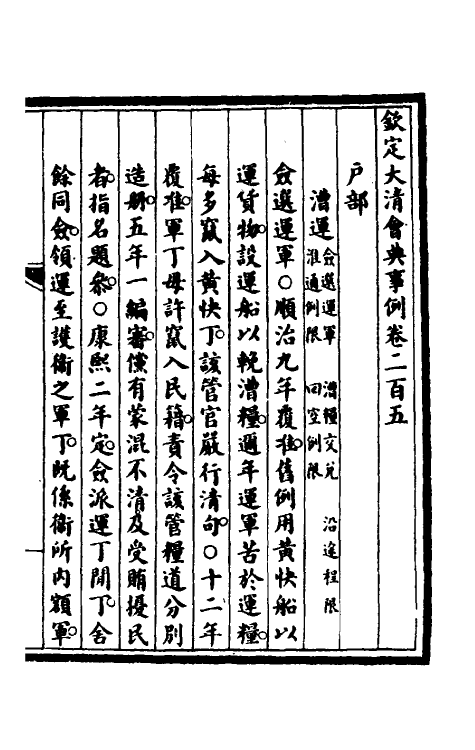 欽定大清會典事例卷二百五
戶部
漕運 僉選運軍 漕糧交兌 沿途程限
淮通例限 回空例限
僉選運軍○順治九年覆准舊例用黃快船以
運貨物設運船以輓漕糧邇年運軍苦於運糧
每多竄入黃快丁該管官嚴行清句○十二年
覆准軍丁毋許竄入民籍責令該管糧道分別
造冊五年一編審儻有蒙混不清及受賄擾民
者指名題參○康熙二年定僉派運丁開丁舍
餘同僉領運至護衞之軍丁旣係衞所內額軍